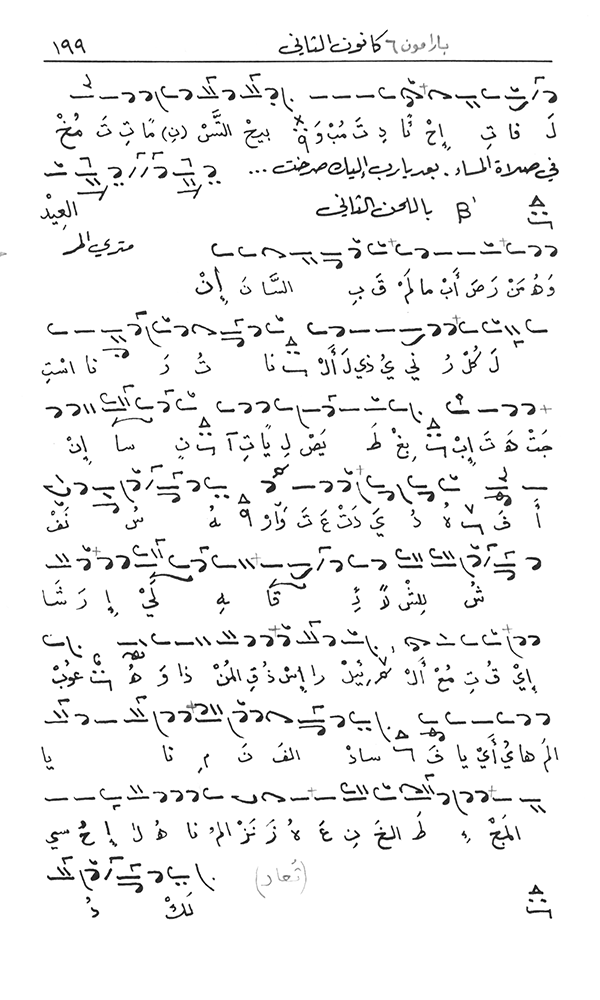 بارامون ٦ كانون الثاني ١٩٩
لَ فا تِ إِحْ نا دِ تَ مُبْ وَ بيحَ التَّسْ (نِ) ما تِ تَ مُخْ
في صلاة المساء . بعد يارب إليك صرخت ...
باللحن الثاني β' العِيْد
متري المر
وَهُ مَنْ رَصَ أَبْ ما لَمْ قَ بِ السَّا نَ إِنْ
لَ كُلْ رُ ني يُ ذي لَ أَلْ نا تُ رَ نا اسْتِ
جَتْ هَ تَ إِبْ بِغْ طَ يَصْ لِ يا تِ آ نِ سا إِنْ
أَ فَ هُ دُ يَ دَتْ عَ تَ وَارْ هُ سُ نَفْ
سُ لِلشْ لا ذِ قا هِ لَيْ إِ رَ شا
إِيْ قُ تِ مُعْ أَلْ ئِيْلْ را إِسْ ذُ قِ المُنْ ذا وَ هُ عوبْ
المَ هاي أَيْ يا فَ سادْ الفَ نَ مِ نا يا
المَجْ ءِ طَ الخَ نِ عَ هُ زَ نَزْ المُ نا هُ لَ إِ حُ سي
(تُعاد)
لَكْ دُ